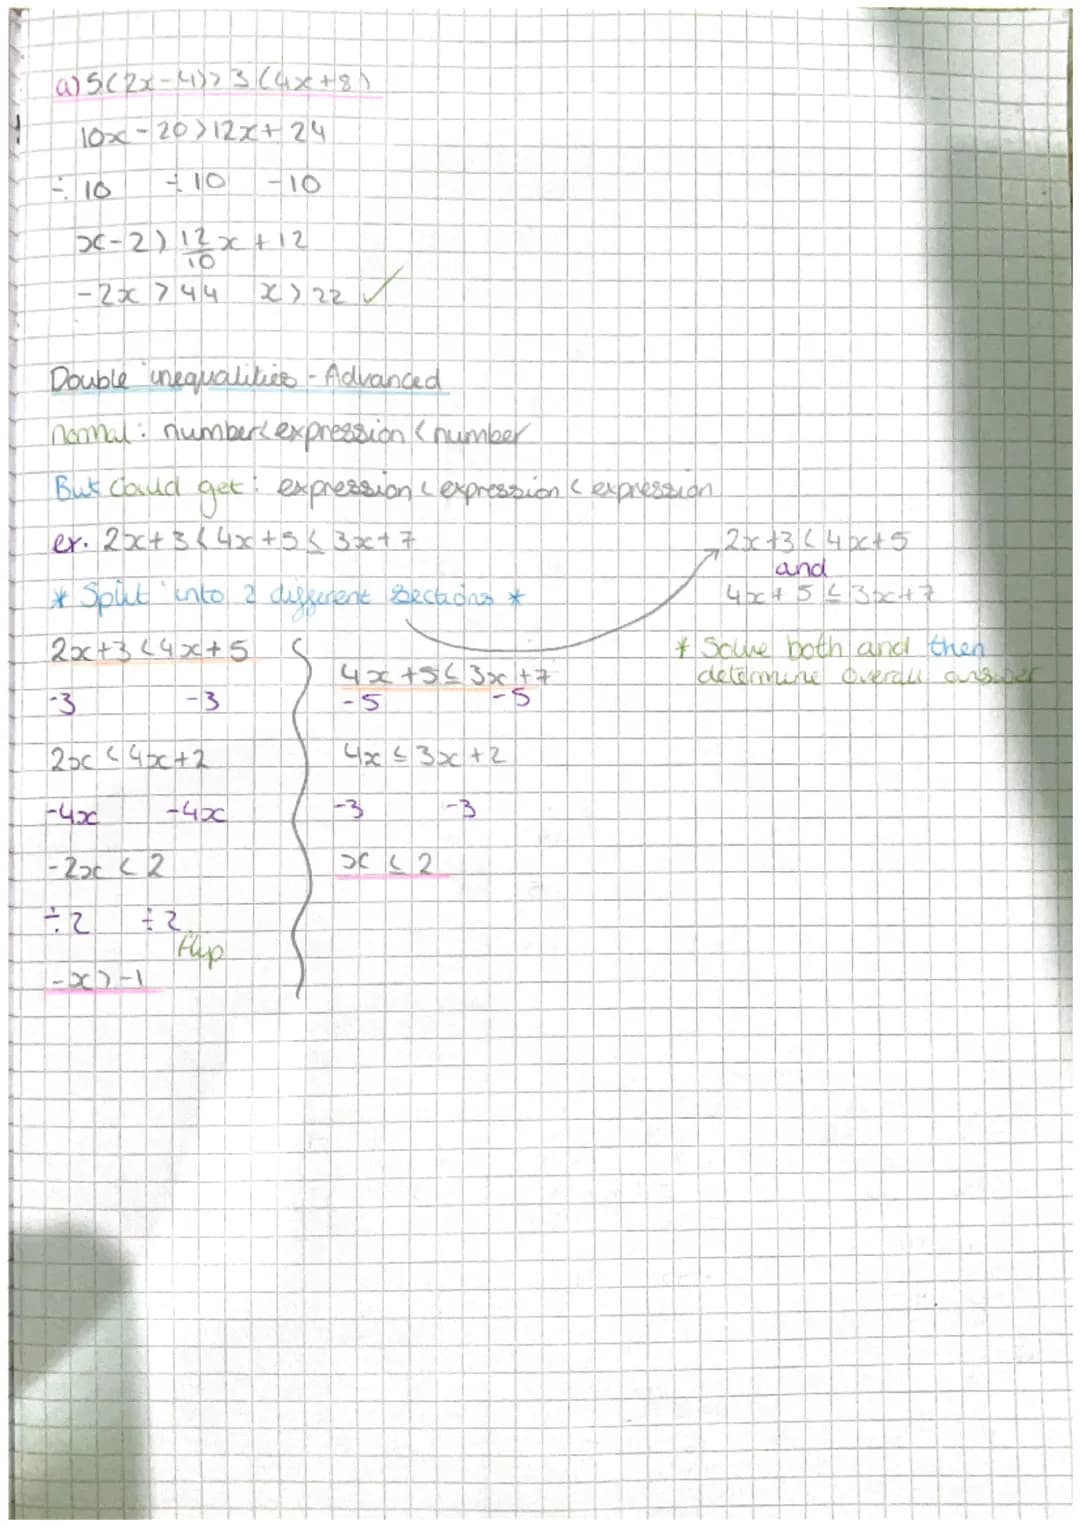 a) 5(2x-4)>3(4x+8)
10x-20>12x+24
÷10 ÷10 -10
x-2>12/10x+12
-2x>44 x>22 ✓
Double inequalities - Advanced
normal: number<expression<number
But could get: expression<expression<expression
ex. 2x+3<4x+5≤3x+7
* Split into 2 different sections *
2x+3<4x+5
and
4x+5≤3x+7
* Solve both and then
determine overall answer
2x+3<4x+5
-3 -3
2x<4x+2
-4x -4x
-2x<2
÷2 ÷2
flip
-x>-1
4x+5≤3x+7
-5 -5
4x≤3x+2
-3 -3
x≤2